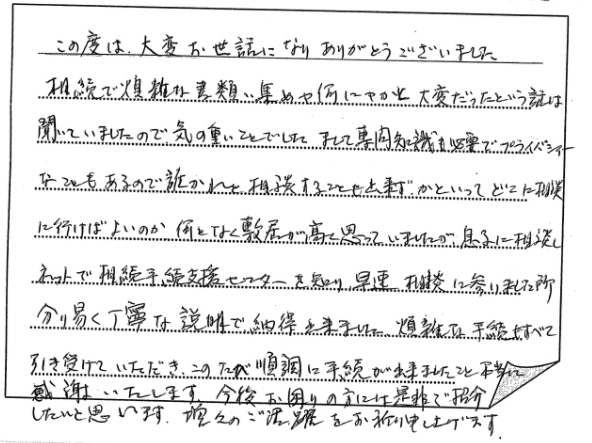 この度は、大変お世話になりありがとうございました
相続で煩雑な書類い集めや何にやかと大変だったという話は
聞いていましたので気の重いことでした まして専門知識も必要でプライバシー
なこともあるので誰かれと相談することも出来ず、かといってどこに相談
に行けばよいのか 何となく敷居が高く思っていましたが、息子に相談し
ネットで相続手続支援センターを知り、早速 相談に参りました所
分り易く丁寧な説明で納得出来ました。煩雑な手続もすべて
引き受けていただき、このたび順調に手続が出来ましたこと 本当に
感謝いたします。今後お困りの方には是非ご紹介
したいと思います。増々のご活躍をお祈り申し上げます。